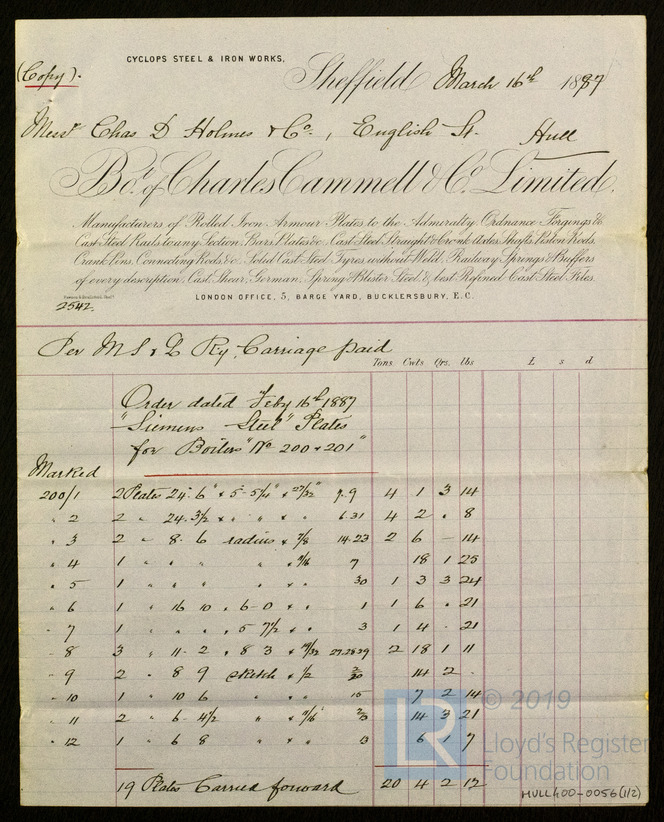 CYCLOPS STEEL & IRON WORKS,
(Copy).
Sheffield March 16th 1887
Messrs Chas D Holmes & Co., English St. Hull
Bot. of Charles Cammell & Co. Limited.
Manufacturers of Rolled Iron Armour Plates to the Admiralty, Ordnance Forgings &c
Cast Steel Rails to any Section, Bars, Plates &c. Cast Steel Straight & Crank Axles, Shafts, Piston Rods,
Crank Pins, Connecting Rods &c. Solid Cast Steel Tyres without Weld, Railway Springs & Buffers
of every description, Cast, Shear, German, Spring & Blister Steel, & best Refined Cast Steel Files.
LONDON OFFICE, 5, BARGE YARD, BUCKLERSBURY, E.C.
2542.
Per M S & L Ry, Carriage paid
Tons Cwts Qrs. lbs £ s d
Order dated Feby 16th 1887
"Siemens Steel" Plates
for Boilers "No 200 & 201"
Marked
200/1 2 Plates 24. 6" x 5- 5 1/4" x 27/32" 7.9 4 1 3 14
" 2 2 " 24. 3 1/2 x " " x " 6.31 4 2 . 8
" 3 2 " 8. 6 radius x 7/8 14.23 2 6 - 14
" 4 1 " " " " x 11/16 7 18 1 25
" 5 1 " " " " x " 30 1 3 3 24
" 6 1 " 16 10 x 6-0 x " 1 1 6 . 21
" 7 1 " " " x 5 7 1/2 x " 3 1 4 - 21
" 8 3 " 11. 2 x 8 3 x 19/32 27.28.29 2 18 1 11
" 9 2 " 8 9 sketch x 1/2 14 2 .
" 10 1 " 10 6 " " " 15 7 2 14
" 11 2 " 6. 4 1/2 " x 11/16 14 3 21
" 12 1 " 6 8 " x " 13 6 1 7
19 Plates Carried forward 20 4 2 12
© 2019
LR
Lloyd's Register
Foundation
HULL400-0056(1/2)